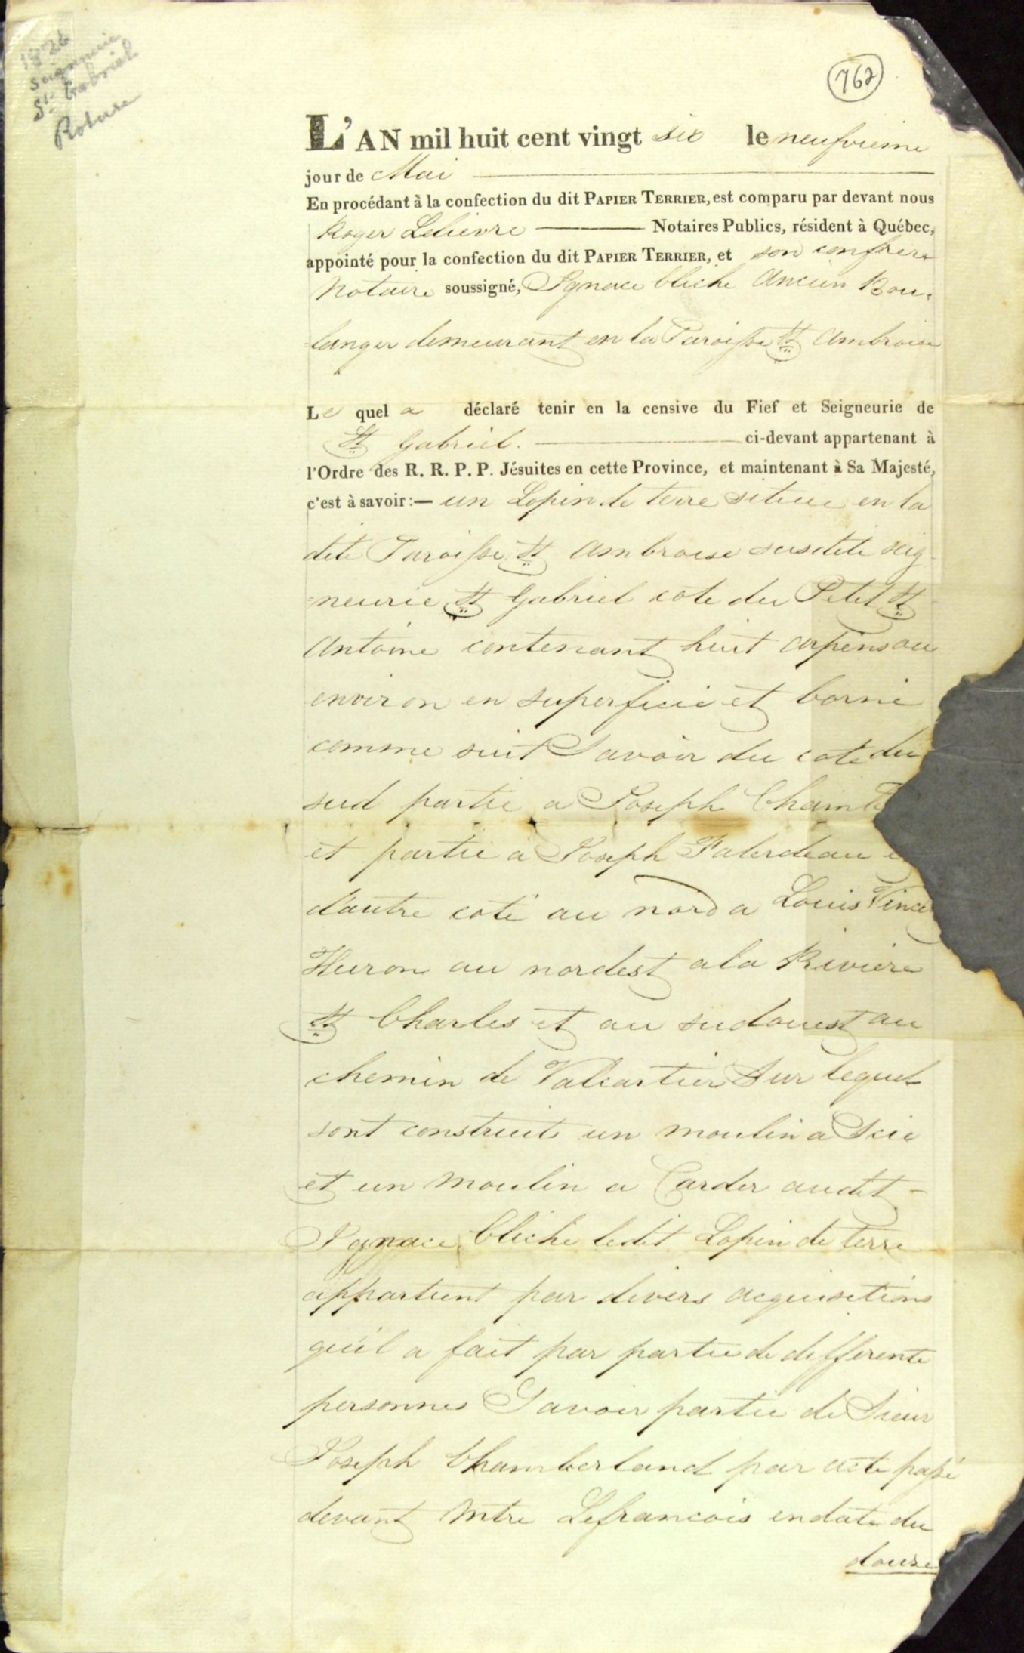 1826
Seigneurie
St. Gabriel
Roture
762
L'AN mil huit cent vingt six le neufvieme
jour de Mai
En procédant à la confection du dit PAPIER TERRIER, est comparu par devant nous
Roger Lelievre Notaires Publics, résident à Québec,
appointé pour la confection du dit PAPIER TERRIER, et son confrere
Notaire soussigné, Ignace Cliche Ancien Bou-
langer demeurant en la Paroisse St Ambroise
Le quel a déclaré tenir en la censive du Fief et Seigneurie de
St Gabriel. ci-devant appartenant à
l'Ordre des R. R. P. P. Jésuites en cette Province, et maintenant à Sa Majesté,
c'est à savoir:— un Lopin de terre situee en la
dite Paroisse St Ambroise susdite seig-
neurie St Gabriel cote du Petit St
Antoine contenant huit arpens ou
environ en superficie et borné
comme suit Savoir du coté du
sud partie a Joseph
et partie a Joseph Falerdeau
d'autre coté au nord a Louis
Huron au nordest a la Riviere
St Charles et au sudouest au
chemin de Valcartier Sur lequel
sont construits un moulin a Scie
et un moulin a Carder audit -
Ignace Cliche ledit Lopin de terre
appartient par divers acquisitions
qu'il a fait par partie de differente
personnes Savoir partie de Sieur
Joseph Chamberland par acte passé
devant Mtre Lefrancois en date du
douze